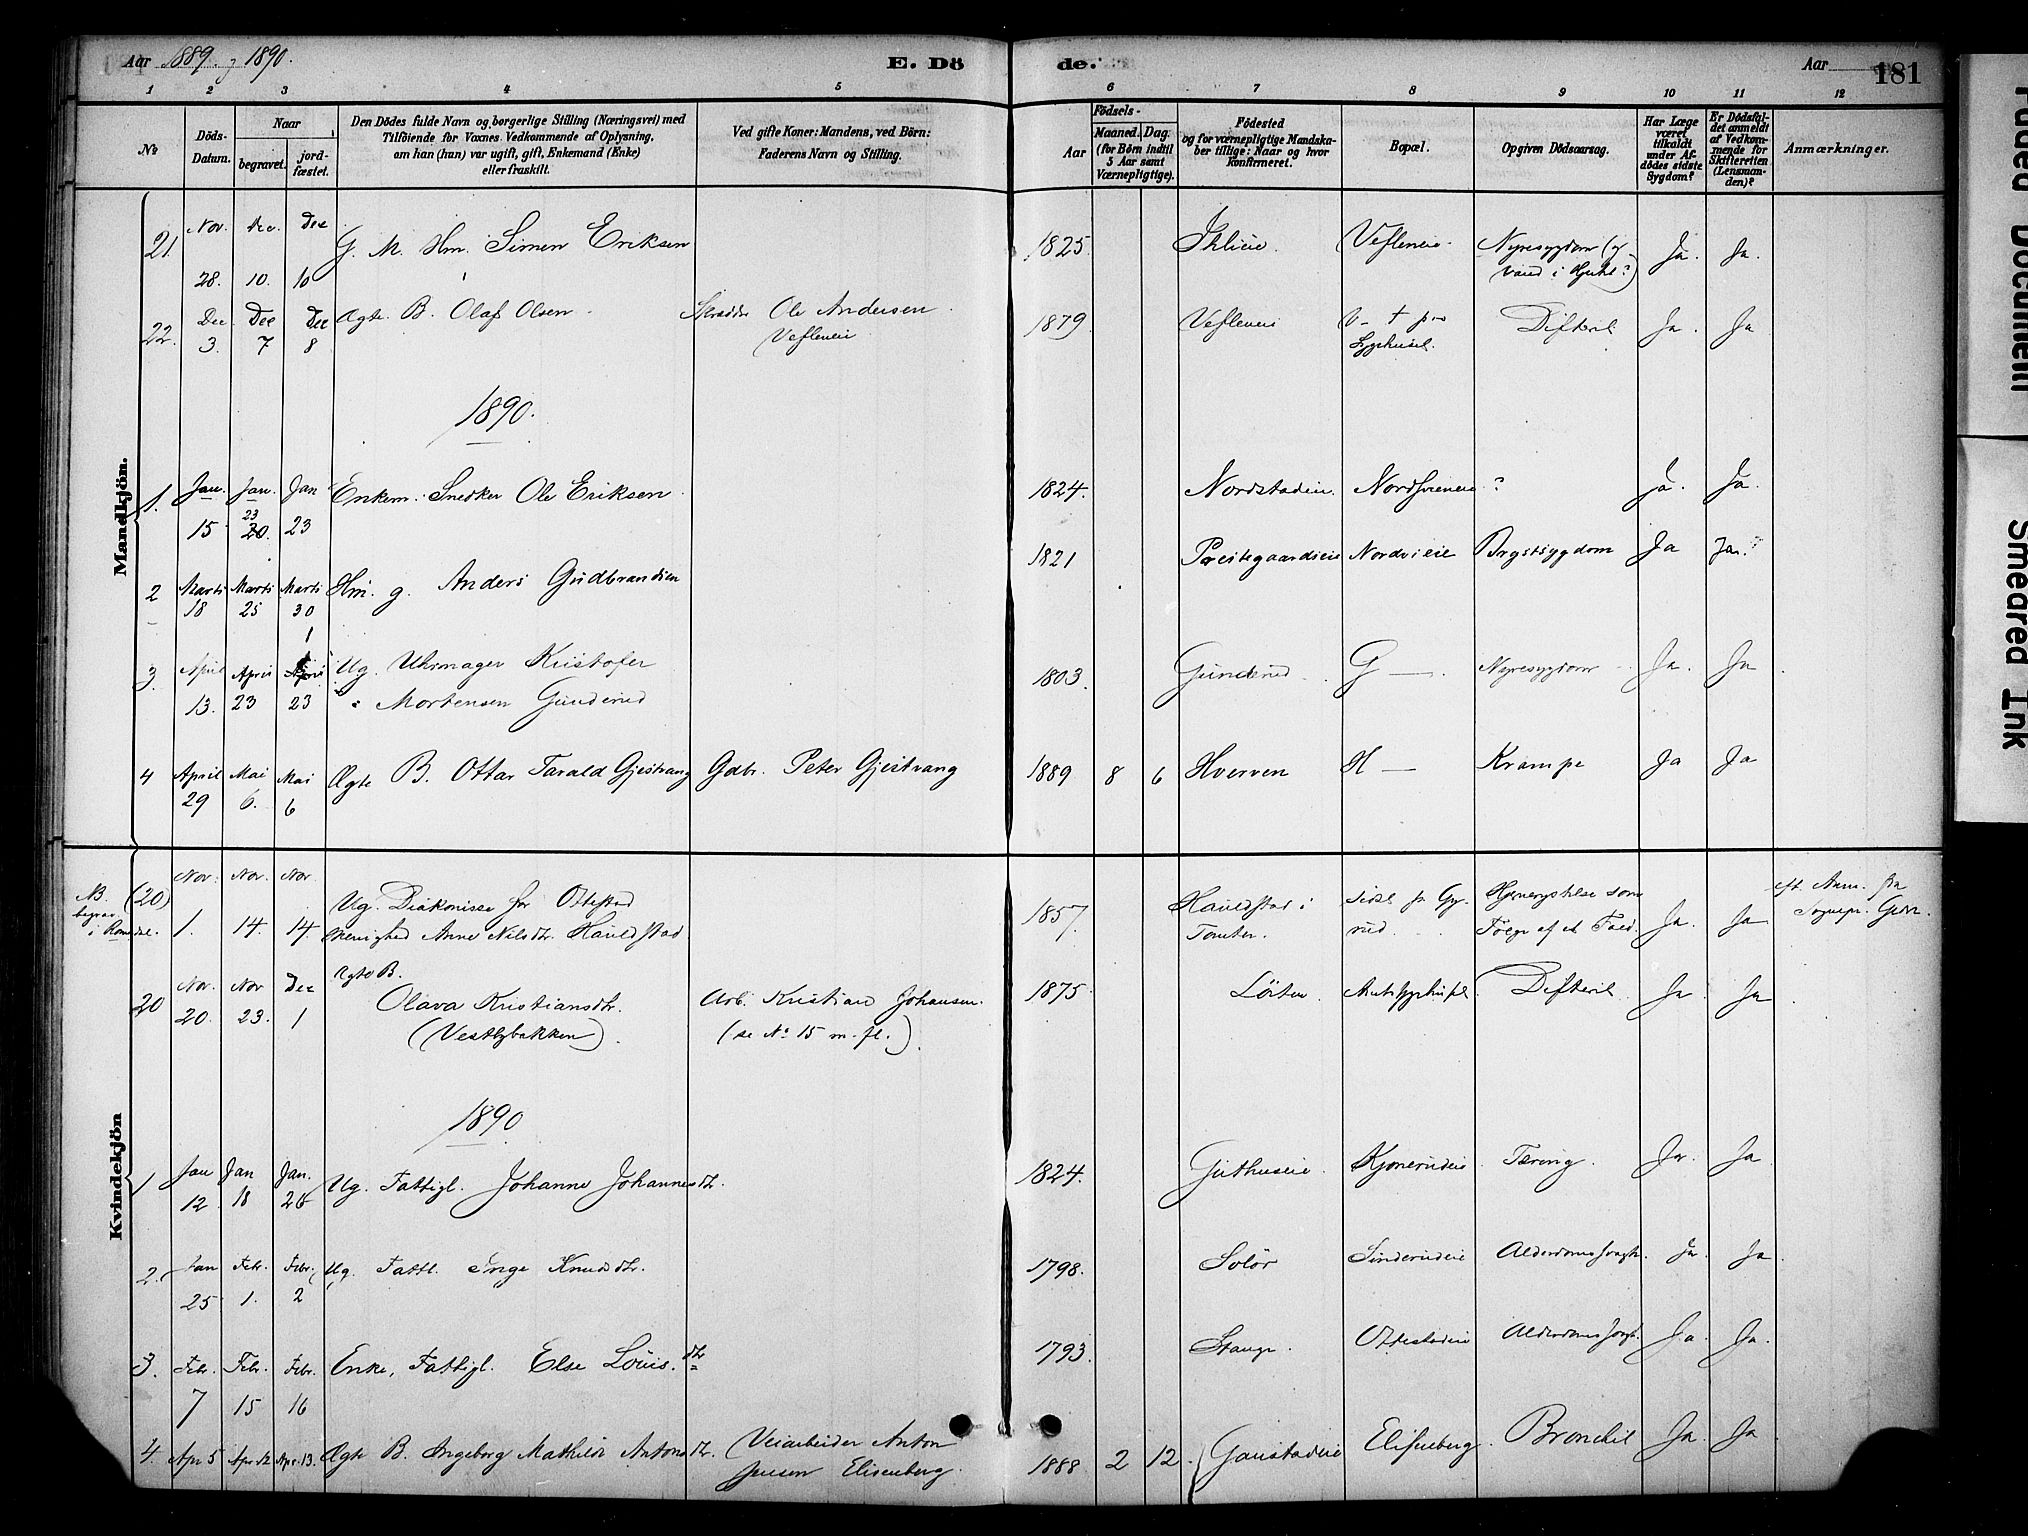 Aar 1889 og 1890.
E. Dö
de.
Aar
181
1 2 3 4 5 6 7 8 9 10 11 12
No
Döds-
Datum.
Naar
begravet.
jord-
fæstet.
Den Dödes fulde Navn og borgerlige Stilling (Næringsvei) med
Tilföiende for Voxnes Vedkommende af Oplysning,
om han (hun) var ugift, gift, Enkemand (Enke)
eller fraskilt.
Ved gifte Koner: Mandens, ved Börn:
Faderens Navn og Stilling.
Födsels-
Aar
Maaned. Dag.
(for Börn indtil
5 Aar samt
Værnepligtige).
Födested
og for værnepligtige Mandska-
ber tillige: Naar og hvor
Konfirmeret.
Bopæl.
Opgiven Dödsaarsag.
Har Læge
været
tilkaldt
under Af-
dödes sidste
Sygdom?
Er Dödsfal-
det anmeldt
af Vedkom-
mende for
Skifteretten
(Lensman-
den)?
Anmærkninger.
Mandkjön.
21. Nov. 28. Dec. 10. Dec 10 G. M. Hm. Simen Eriksen 1825 Vesleneie. Nyresygdom (og Ja. Ja.
22. Dec. 3. Dec 7 Dec 8 Ægte B. Olaf Olsen Skrædder Ole Andersen 1879 Vesleneie Difterit Ja. Ja
Sygehuset.
1890.
1. Jan. 15 Jan. 23 20. Jan 23 Enkem. Snedker Ole Eriksen 1824. Nordstadeie. ? Ja. Ja.
2 Marts 18 Marts 25 Marts 30 Hm. g. Anders Gudbrandsen 1821 Prestegaardseie Nordvieie Brystsygdom Ja Ja.
3. April 13. April 23 April 23 Ug. Uhrmager Kristofer
Mortensen Gunderud 1803. Gunderud G — Nyresygdom Ja. Ja
4 April 29 Mai 6. Mai 6 Ægte B. Ottar Tarald Gjestvang Gdbr. Peter Gjestvang 1889 8 6 Hverven H — Krampe Ja Ja
Kvindekjön
NB. (20) Nov. 1. Nov. 14. Nov 14. Ug. Diakonisse for Ottestad
Menighed Anne Nilsdtr. Hauldstad 1857. Hauldstad i
Tomter. Hjernerystelse som
Følge af et Fald. Ja. Ja eft. Anm. fra
Sognepr.
20 Nov. 20. Nov 23. Dec 1 Ægte B.
Olava Kristiansdtr.
(Vestlybakken). Arb. Kristian Johansen.
(se No 15 m. fl.) 1875 Löiten. Amtssygehuset Difterit Ja Ja
1890
1 Jan 12 Jan 18 Jan. 26 Ug. Fattigl. Johanne Johannesdtr. 1824. Guthuseie. Kjonerudeie Tæring. Ja. Ja
2. Jan 25 Febr. 1. Febr. 2 Ug. Fattl. Inge Knudsdtr. 1798. Solör Sinderudeie Alderdomssvagh. Ja. Ja
3. Febr. 7 Febr. 15 Febr. 16 Enke, Fattigl. Else Louis.dtr 1793. Stange. Ottestadeie Alderdomssvagh. Ja. Ja.
4. Apr 5 Apr. 12 Apr. 13. Ægte B. Ingeborg Mathilde Antonsdtr. Veiarbeider Anton
Jensen Elisenberg. 1888 2 12 Gaustadeie Elisenberg. Bronchit Ja. Ja
Faded Document
Smeared Ink